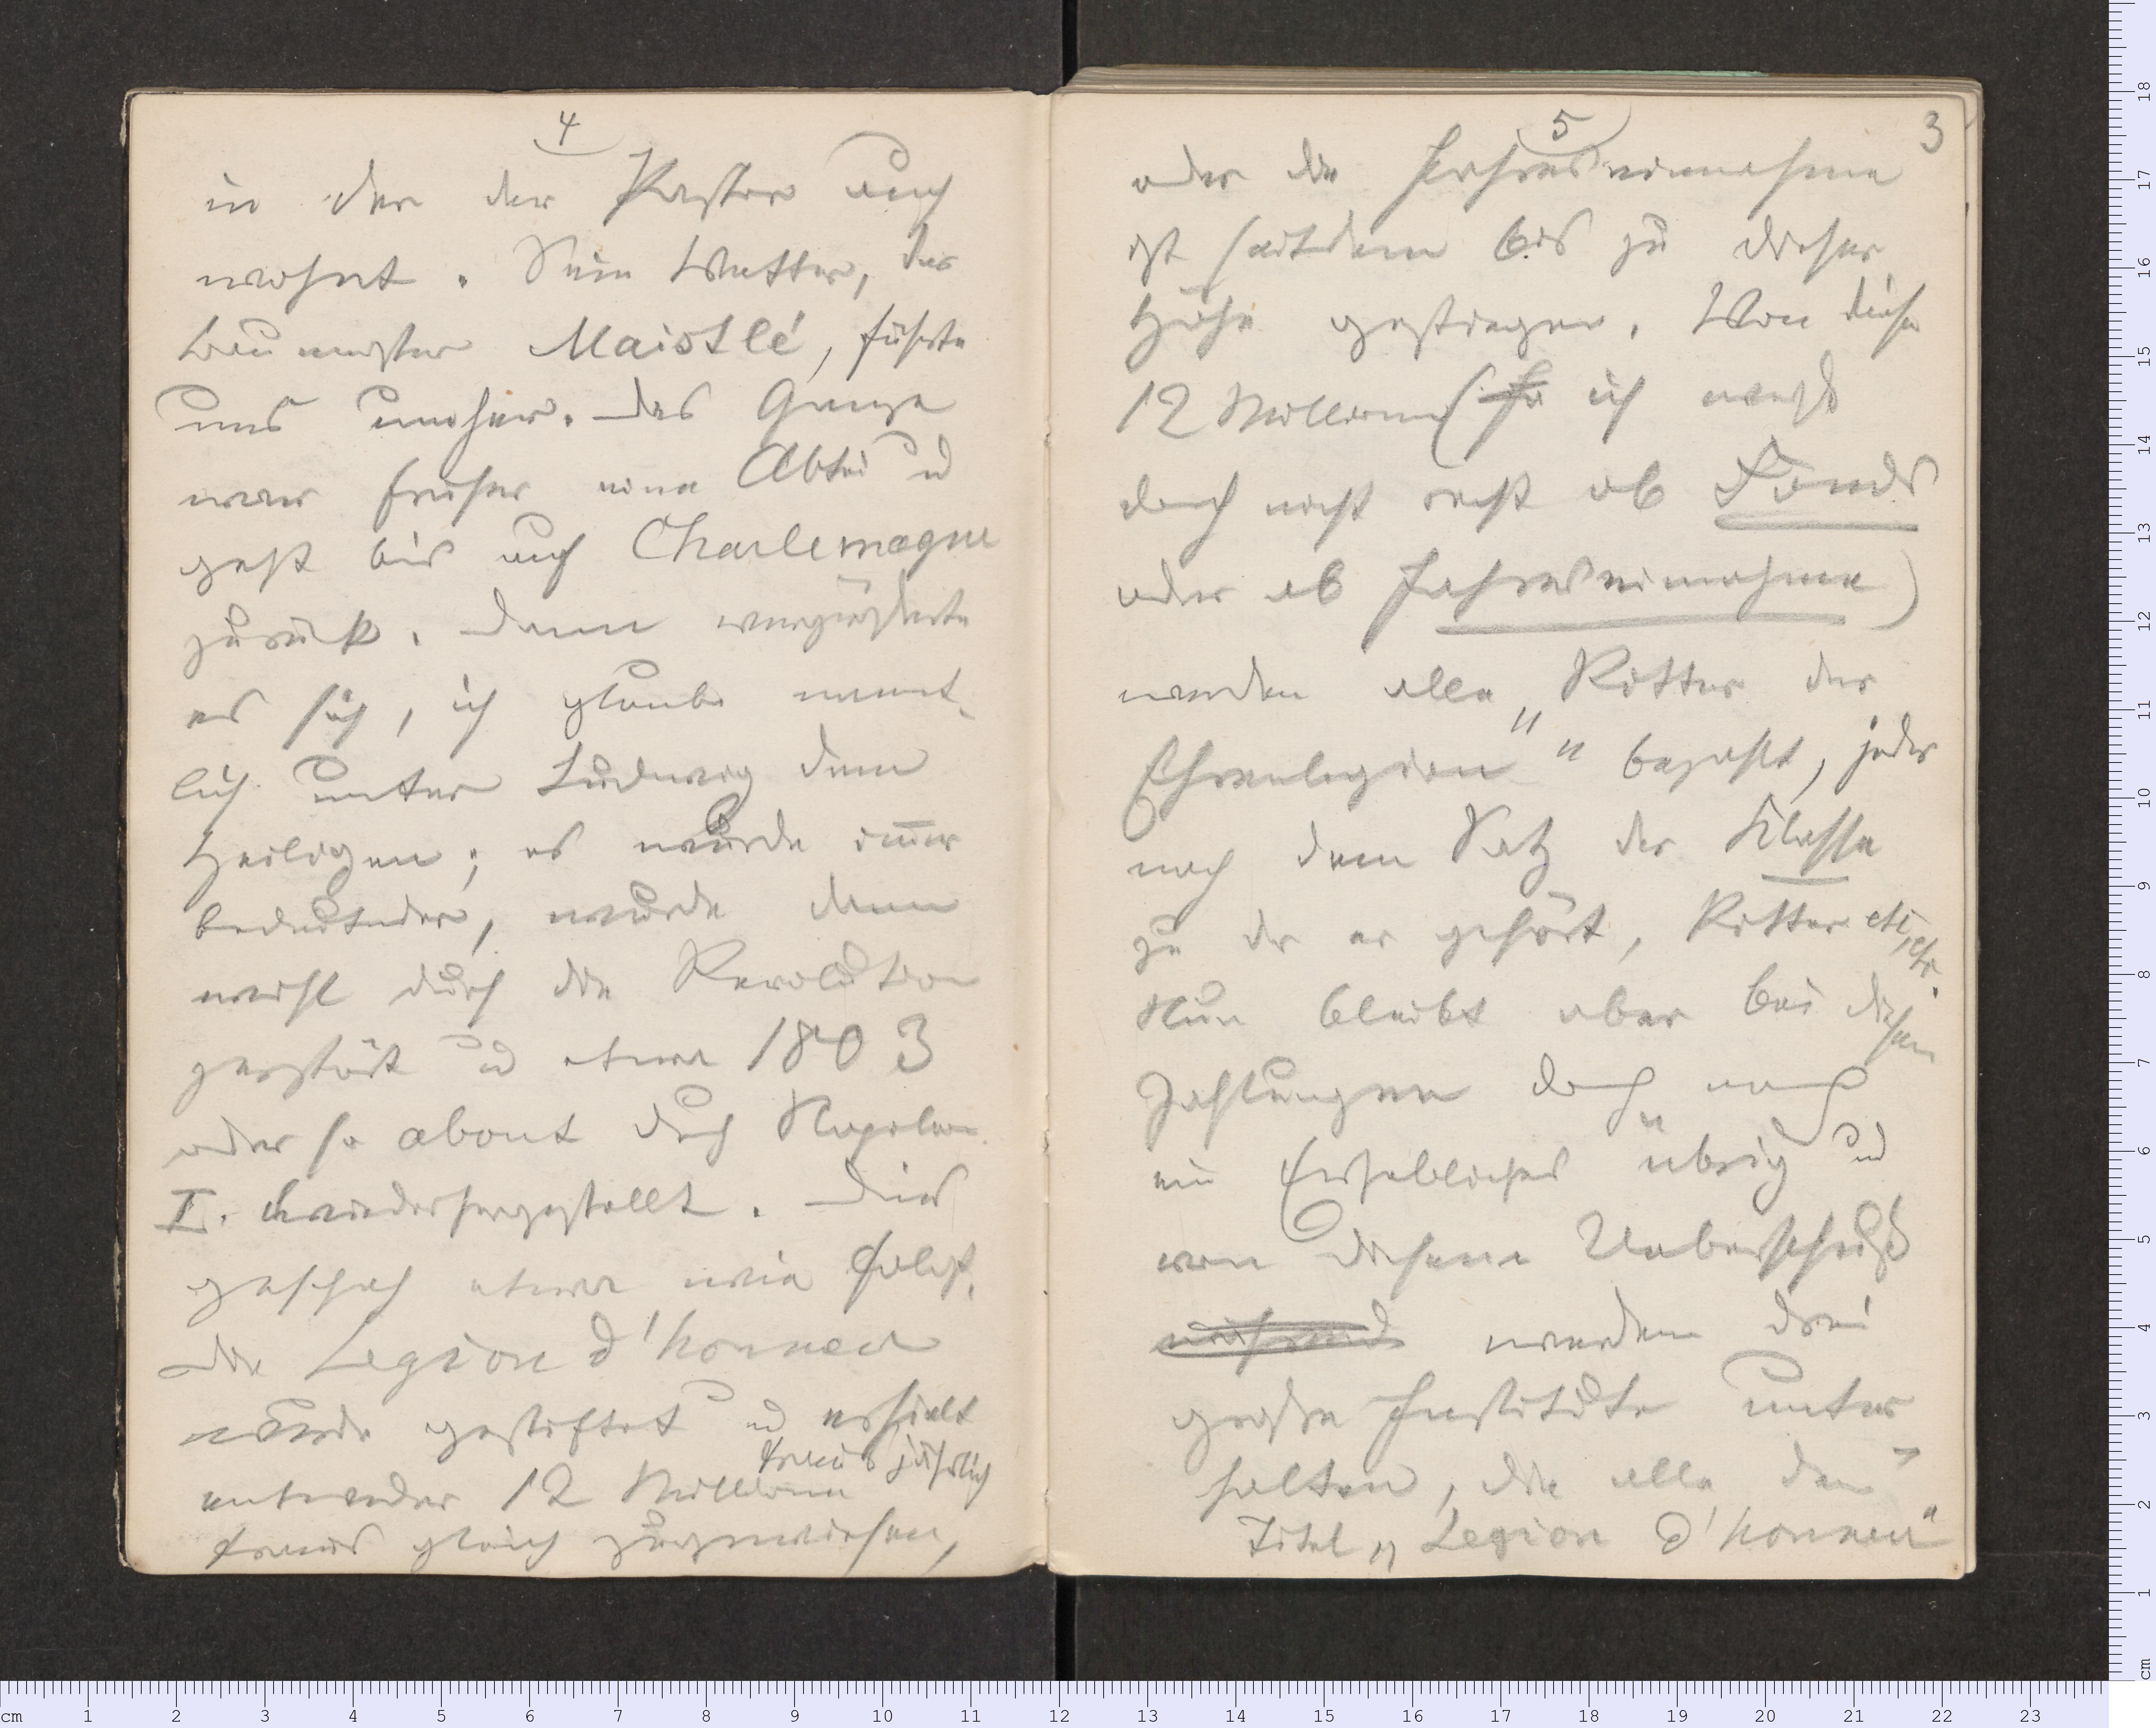 4
in der der Pastor auch
wohnt. Sein Vetter, der
Baumeister Maistlé, führte
uns umher. Das Ganze
war früher eine Abtei u
geht bis auf Charlemagne
zurück. Dann vergrößerte
es sich, ich glaube nament-
lich unter Ludwig dem
Heiligen; es wurde im̅er
bedeutender, wurde dann
wohl durch die Revolution
zerstört u etwa 1803
oder so about durch Napoleon
I. wiederhergestellt. Dies
geschah etwa wie folgt.
Die Legion d'honneur
wurde gestiftet u erhielt
francs jährlich
entweder 12 Millionen
francs gleich zugewiesen,
5
3
oder die Jahreseinnahme
ist seitdem bis zu dieser
Höhe gestiegen. Von diesen
12 Millionen (ich weiß
doch nicht recht ob Fonds
oder ob Jahreseinnahme)
werden alle „Ritter der
Ehrenlegion" bezahlt, jeder
nach dem Satz der Klasse
zu der er gehört, Ritter etc, etc.
Nun bleibt aber bei diesen
Zahlungen doch noch
ein Erhebliches übrig u
von diesem Ueberschuß
werden drei
große Institute unter
halten, die alle den
Titel „Legion d'honneur"